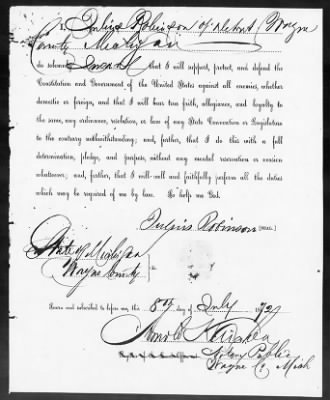 I, Julius Robinson of Detroit Wayne
County Michigan
do solemnly Swear that I will support, protect, and defend the
Constitution and Government of the United States against all enemies, whether
domestic or foreign, and that I will bear true faith, allegiance, and loyalty to
the same, any ordinance, resolution, or law of any State Convention or Legislature
to the contrary notwithstanding; and, further, that I do this with a full
determination, pledge, and purpose, without any mental reservation or evasion
whatsoever; and, further, that I will well and faithfully perform all the duties
which may be required of me by law. So help me God.
Julius Robinson [SEAL.]
State of Michigan
Wayne County } ss
Sworn and subscribed to before me, this 8th day of July 1872
Notary Public
Wayne Co Mich